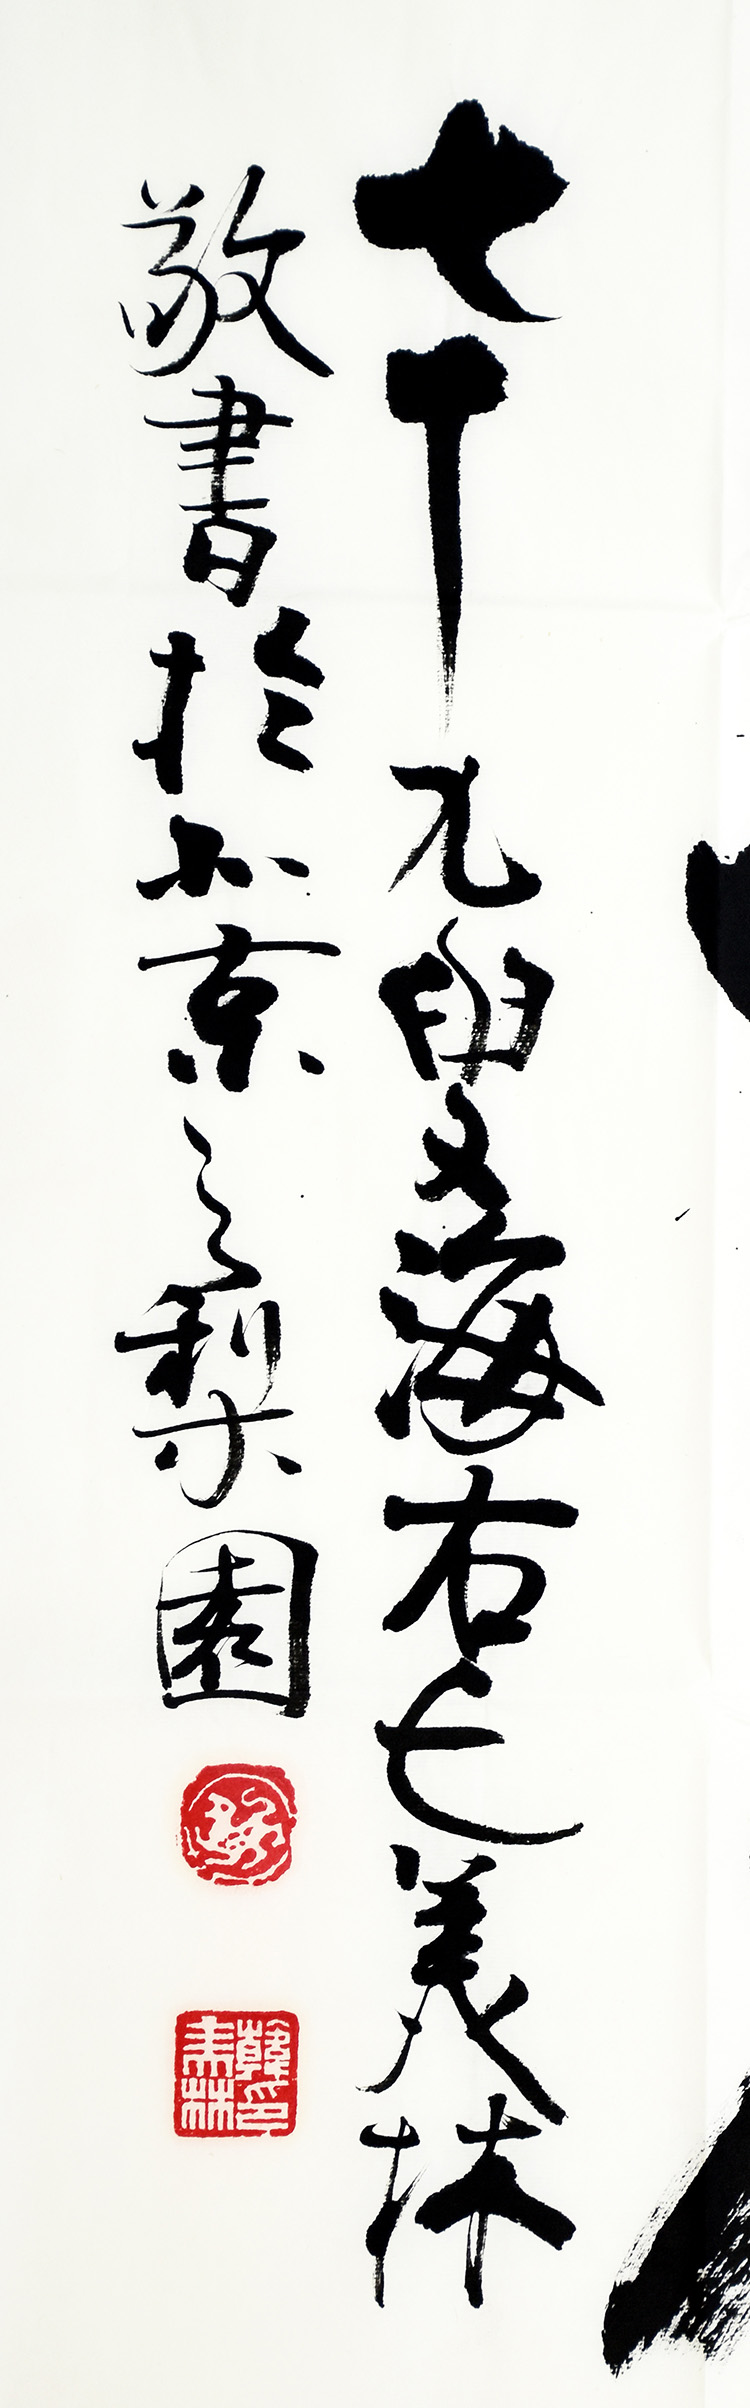 七十九叟海右美林
敬書於北京之梨園
韓印美林